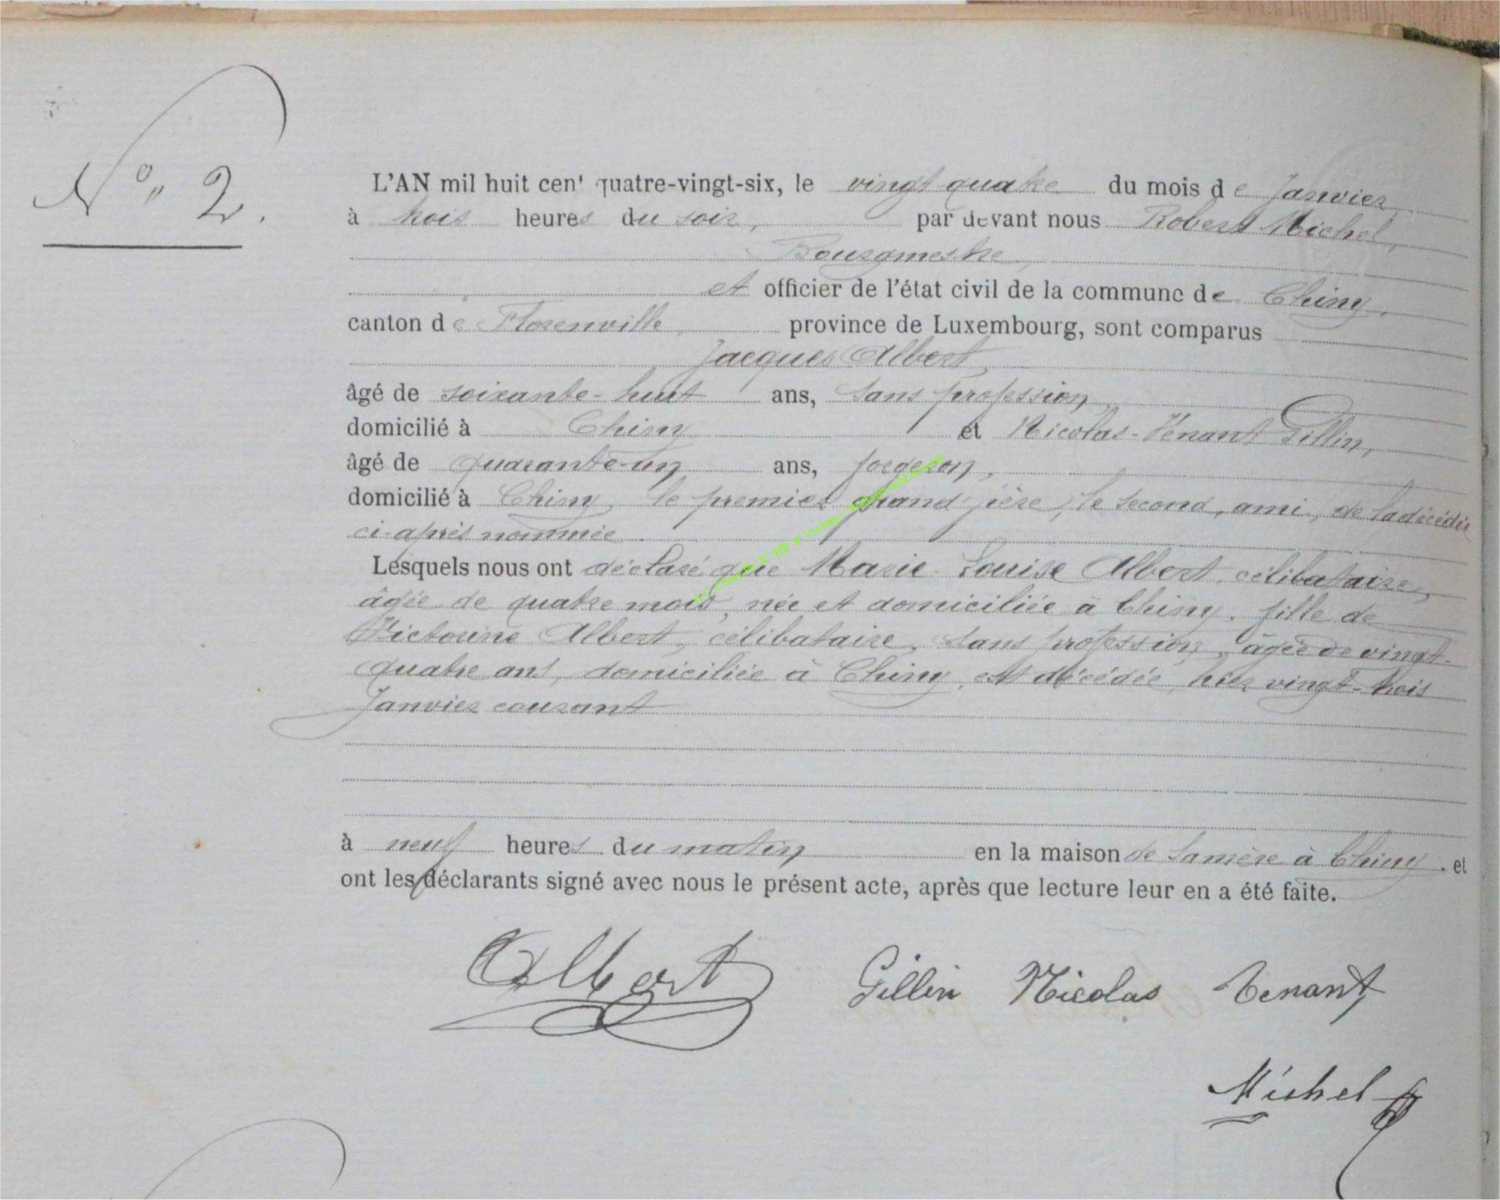 N° 2.
L'AN mil huit cent quatre-vingt-six, le vingt quatre du mois de Janvier
à trois heures du soir, par devant nous Robert Michel,
Bourgmestre,
et officier de l'état civil de la commune de Chiny,
canton de Florenville, province de Luxembourg, sont comparus
Jacques Albert,
âgé de soixante-huit ans, sans profession,
domicilié à Chiny et Nicolas-Vénant Gillin,
âgé de quarante-un ans, forgeron,
domicilié à Chiny, le premier grand'père, le second, ami, de la décédée
ci-après nommée.
Lesquels nous ont déclaré que Marie-Louise Albert, célibataire,
âgée de quatre mois, née et domiciliée à Chiny, fille de
Victorine Albert, célibataire, sans profession, âgée de vingt-
quatre ans, domiciliée à Chiny, est décédée, hier vingt-trois
Janvier courant
à neuf heures du matin en la maison de sa mère à Chiny. et
ont les déclarants signé avec nous le présent acte, après que lecture leur en a été faite.
Albert Gillin Nicolas Venant
Michel